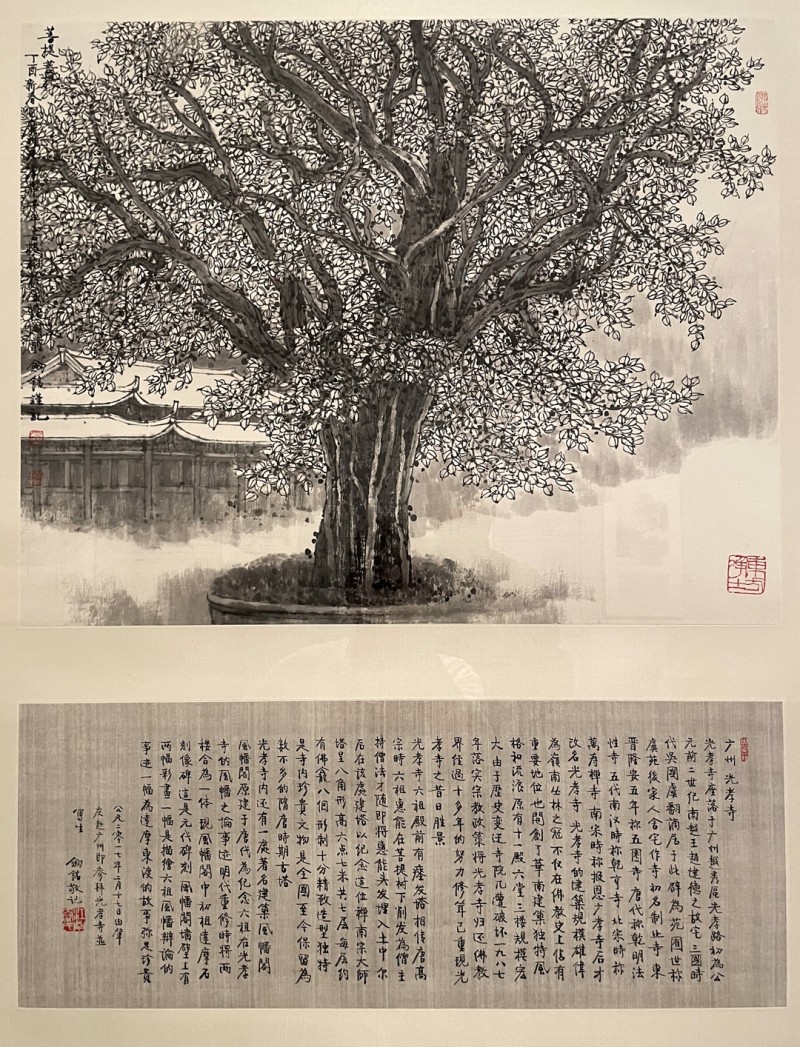 菩提
丁酉新春
劍銘謹記
東方淨土
广州 光孝寺
光孝寺座落于广州越秀区光孝路初為公
元前二世纪南越王赵建德之故宅三國時
代吴國虞翻謫居于此辟為苑囿世称
虞苑後家人舍宅作寺初名制止寺東
晋隆安五年称五園寺唐代称乾明法
性寺五代南汉時称乾亨寺北宋時称
萬寿禅寺南宋時称报恩广孝寺后才
改名光孝寺光孝寺的建筑規模雄偉
為嶺南丛林之冠不仅在佛教史上佔有
重要地位也開創了華南建築独特風
格和流派原有十一殿六堂三楼規模宏
大由于歷史变迁寺院几遭破坏一九八七
年落实宗教政策将光孝寺归还佛教
界经過十多年的努力修葺已重現光
孝寺之昔日胜景
光孝寺六祖殿前有瘗发塔相传唐高
宗時六祖惠能在菩提树下削发為僧主
持僧法才随即将惠能头发埋入土中尔
后在该處建塔以纪念这位禅南宗大師
塔呈八角形高六点七米共七层每层均
有佛龛八個形制十分精致造型独特
是寺内珍贵文物是全國至今保留為
数不多的隋唐時期古塔
光孝寺内还有一處著名建築風幡閣
風幡閣原建于唐代為纪念六祖在光孝
寺的風幡之論事迹明代重修時将两
楼合為一体現風幡閣中初祖達摩石
刻像碑這是元代碑刻風幡閣墙壁上有
两幅彩畫一幅是描绘六祖風幡辩論的
事迹一幅為達摩東渡的故事弥足珍贵
七年六月十七日由肇
庆赴广州即参拜光孝寺並
写生 劍銘敬记